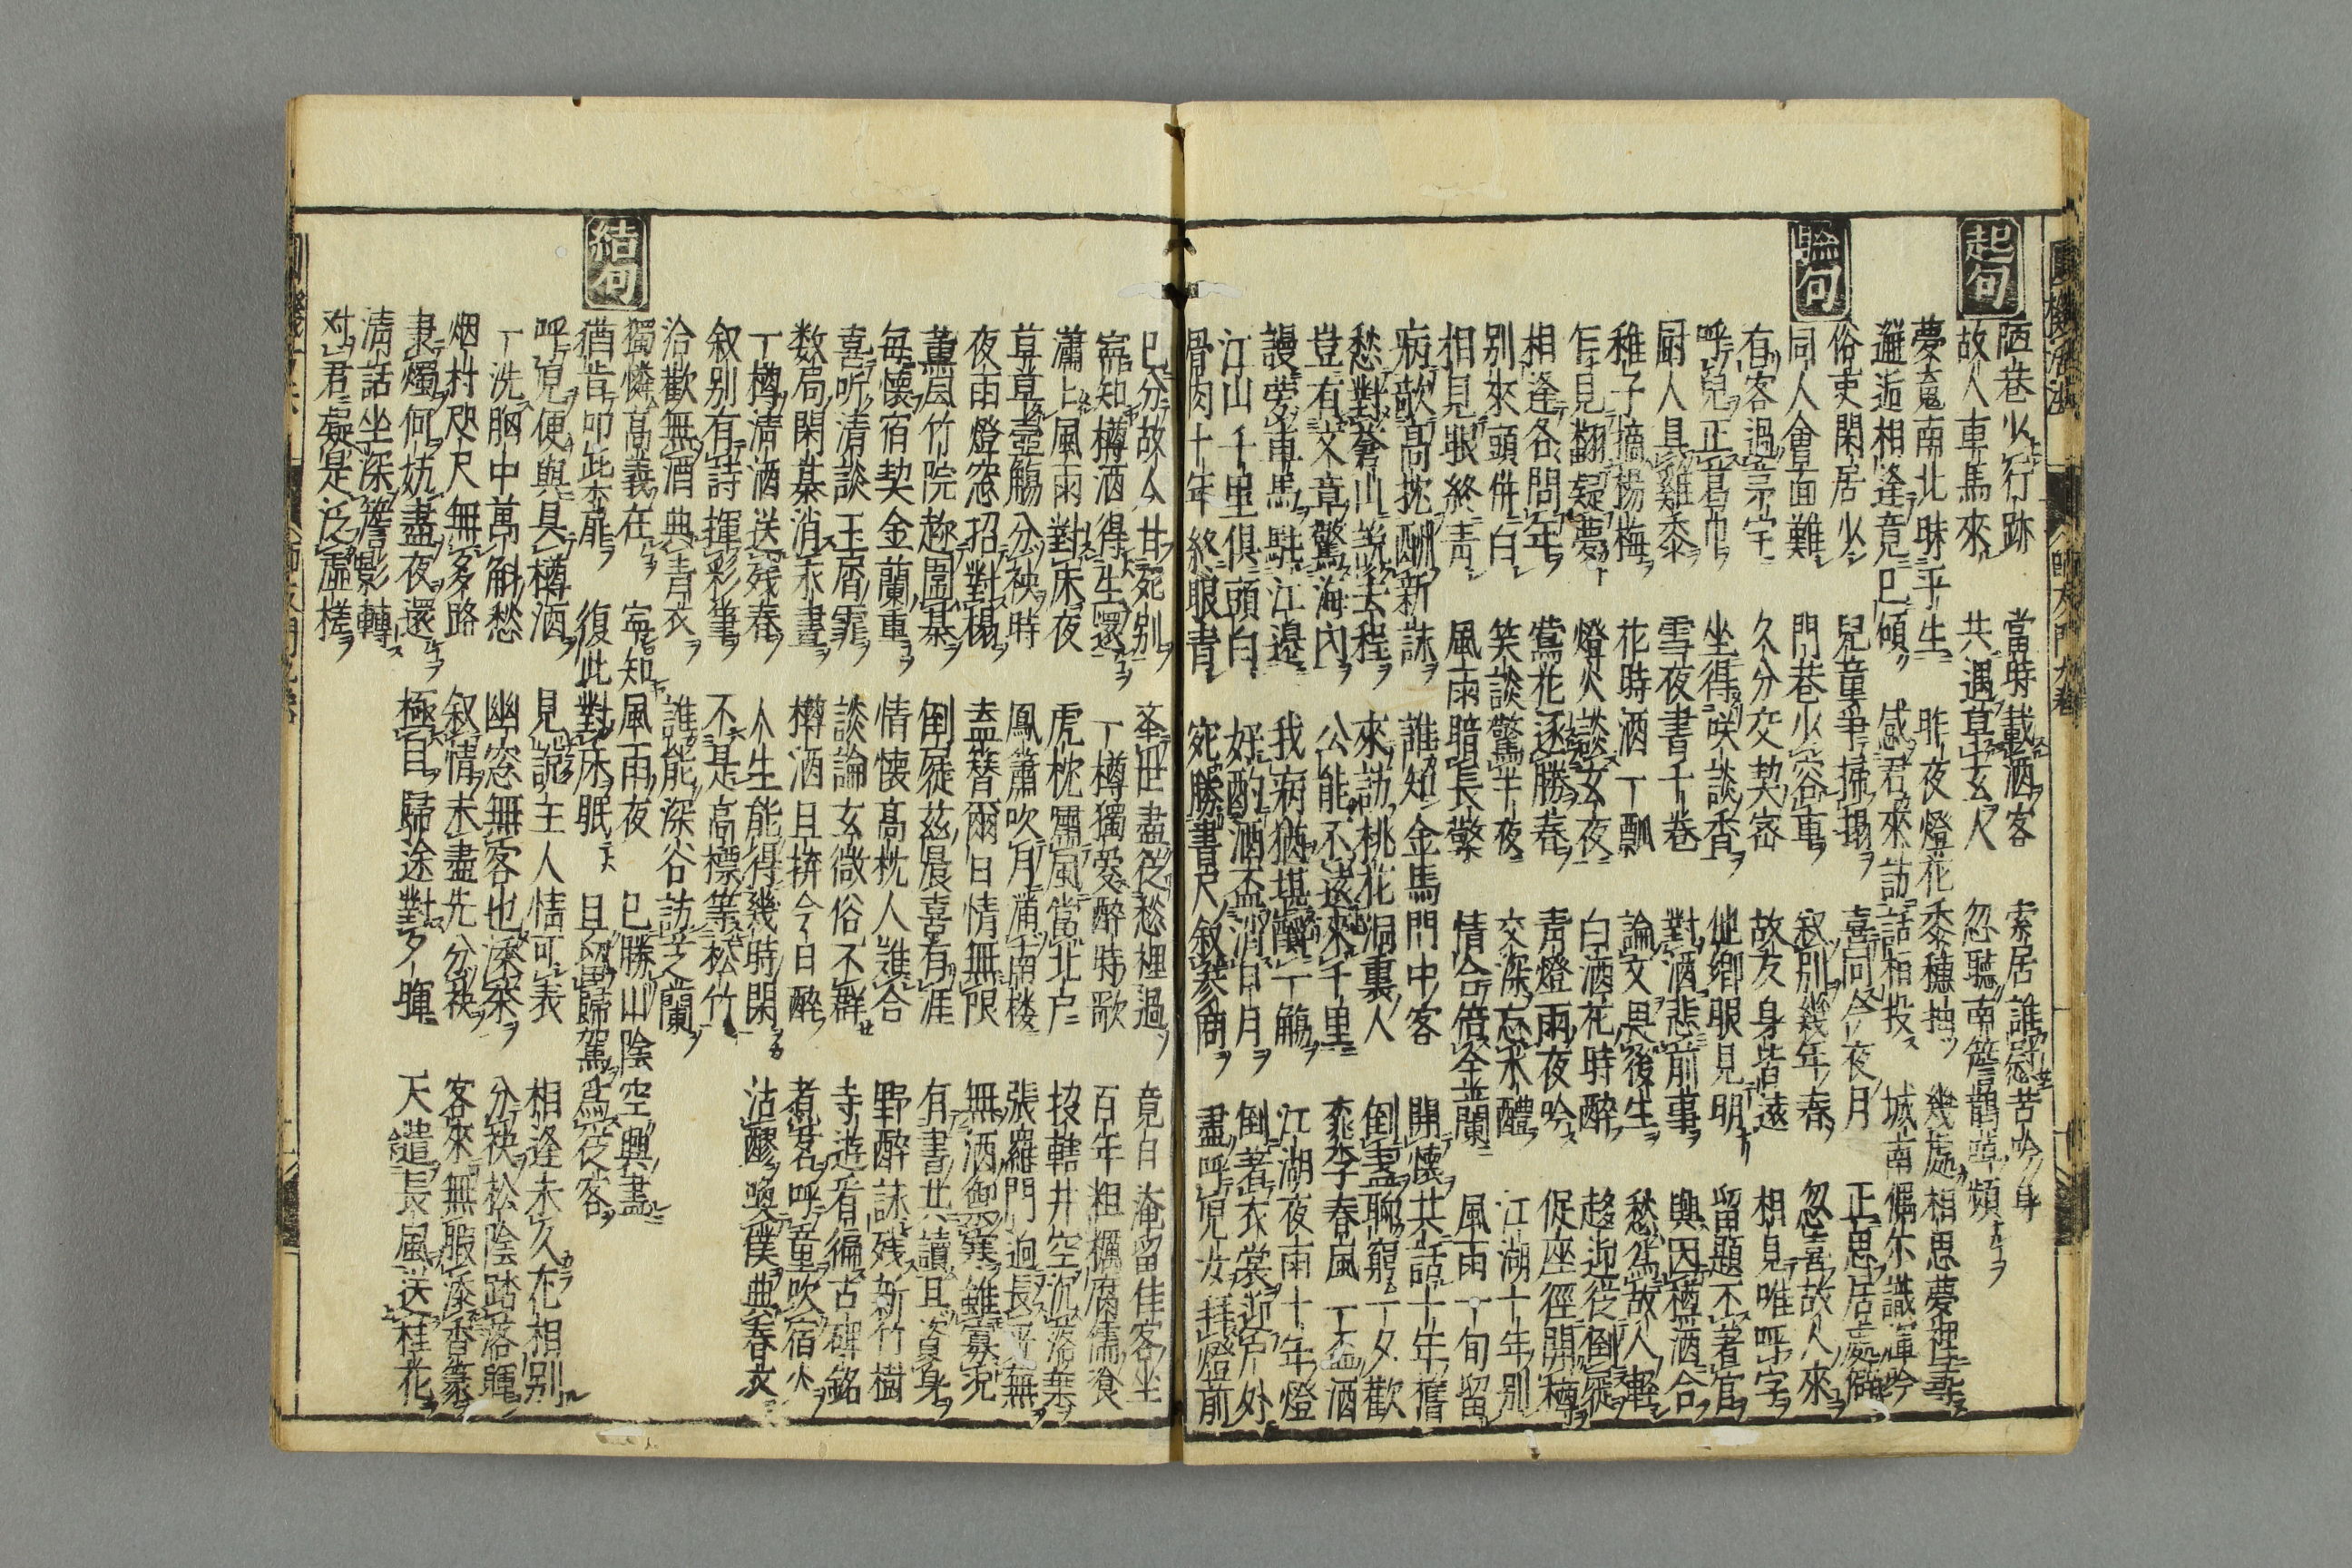 起句
陋巷少行跡 當時載酒客 索居誰冠苦吟身
故人車馬來 共過草玄人 忽聴南簷鵲噪頻
夢魂南北昧平生 昨夜燈花黍穗抽 幾處相思夢裡尋
邂逅相逢竟已傾 感君來訪話相投 城南偏尓識
俗吏閑居少 兒童爭掃榻 喜同今夜月 正思居處僻
聯句
同人會面難 門巷少容車 叙別幾年春 忽喜故人來
有客過茅宇 久分交契密 故友身皆遠 相見唯呼字
呼兒正葛巾 坐得咲談香 他鄉眼見明 留題不著官
厨人具雞黍 雪夜書千卷 對酒悲前事 興因樽酒合
稚子摘楊梅 花時酒一瓢 論文畏後生 愁為故人輕
乍見翻疑夢 燈火談玄夜 白酒花時醉 趍迎從倒屣
相逢各問年 鶯花逐勝春 青燈雨夜吟 促座徑開樽
別來頭併白 笑談驚半夜 交深忘釆醴 江湖十年別
相見眼終青 風雨暗長檠 情合倍金蘭 風雨一旬留
病欹高枕酬新詠 誰知金馬門中客 開懐共話十年舊
愁對蒼山説去程 來訪桃花洞裏人 倒盞聊窮一夕歡
豈有文章驚海內 公能不遠來千里 桃李春風一盃酒
謾勞車馬駐江邊 我病猶堪釂一觴 江湖夜雨十年燈
江山千里俱頭白 好酌酒盃消日月 倒著衣裳迎戸外
骨肉十年終眼青 死勝書尺叙參商 盡呼兒女拜燈前
已分故人甘死別 莶世盡從愁裡過 竟日淹留佳客坐
寧知樽酒得生還 一樽獨愛醉時歌 百年粗糲腐儒飡
瀟上風雨對床夜 虎枕霜風當北户 投轄井空沉落葉
草草壺觴分袂時 鳳簫吹月滿南楼 張羅門逈長平蕪
夜雨燈窓招對榻 盍簪爾日情無限 無酒禦寒雖寡況
薫風竹院趂圍棊 倒屣茲晨喜有涯 有書共讀且資身
毎懐宿契金蘭重 情懐高枕人誰合 野醉詠残新竹樹
喜听清談玉屑霏 談論玄微俗不群 寺遊看徧古碑銘
数局閑棊消永晝 樽酒且拚今日醉 煮茗呼童吹宿火
一樽清酒送残春 人生能得幾時閑 沽醪喚僕典春衣
叙別有詩揮彩筆 不是高標等松竹
洽歡無酒典青衣 誰能深谷訪芝蘭
結句
獨憐高義在 寧知風雨夜 已勝山陰空興盡
猶肯叩柴扉 復此對床眠 且留歸駕為從客
呼兒便與具樽酒 見説主人情可表 相逢未久花相別
一洗胸中萬斛愁 幽窓無客也添來 分袂松陰踏落暉
烟村咫尺無多路 叙情未盡先分袂 客來無暇添香篆
秉燭何妨盡夜還 極目歸途對夕暉 天遣長風送桂花
清話坐深簷影轉
对君疑是泛虛槎